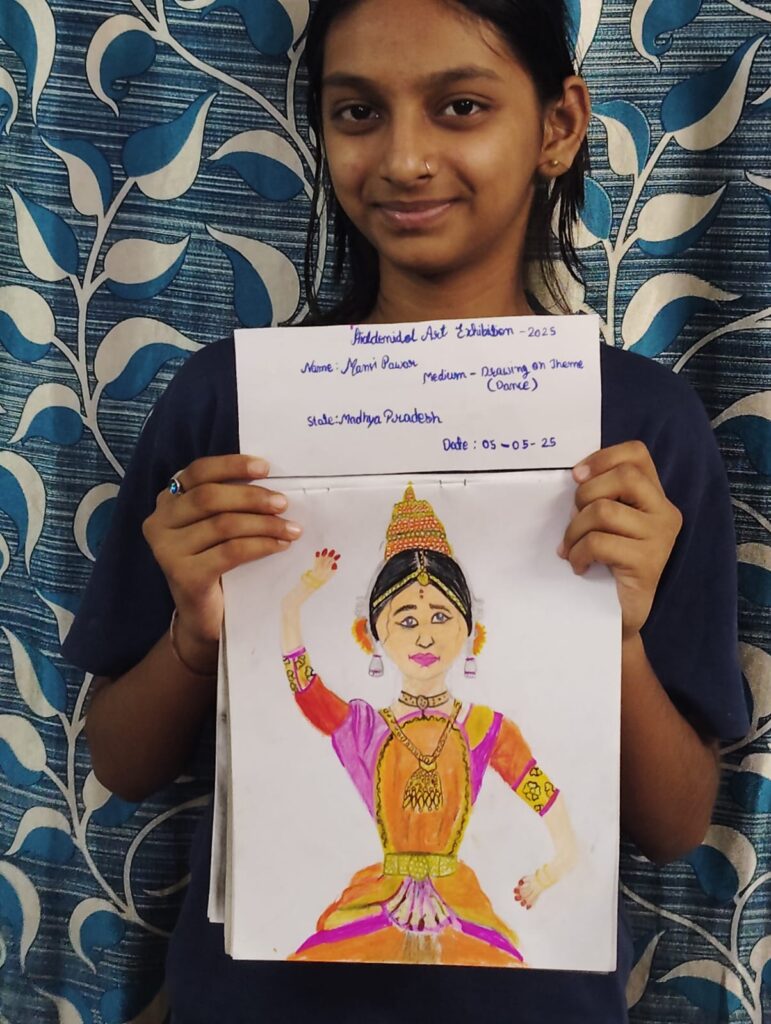 Art Exhibition - 2025
Name: Manvi Pawar
Medium - Drawing on Theme
(Dance)
State: Madhya Pradesh
Date: 05-05-25